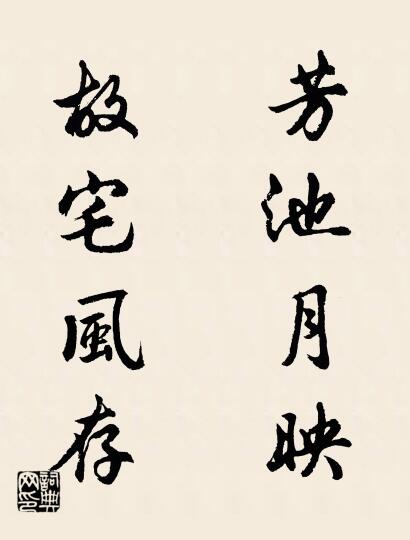 芳池月映
故宅風存
詞典網印